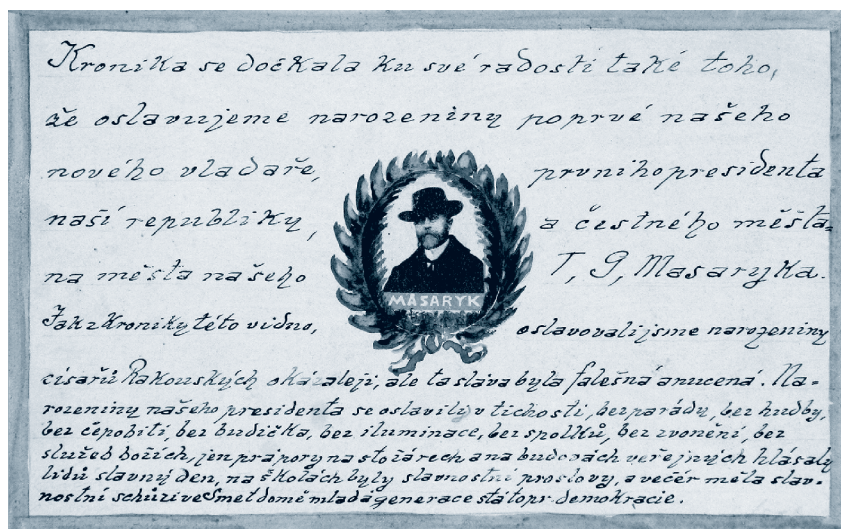 Kronika se dočkala ku své radosti také toho,
že oslavujeme narozeniny poprvé našeho
nového vladaře, prvního presidenta
naší republiky, a čestného měšťa-
na města našeho T, G, Masaryka.
MASARYK
Jak z Kroniky této vidno, oslavovali jsme narozeniny
císařů Rakouských okázaleji, ale ta sláva byla falešná a nucená. Na-
rozeniny našeho presidenta se oslavily v tichosti, bez parády, bez hudby,
bez čepobití, bez budíčka, bez iluminace, bez spolků, bez zvonění, bez
služeb božích, jen prápory na stožárech a na budovách veřejných hlásaly
lidu slavný den, na školách byly slavnostní proslovy, a večér měla slav-
nostní schůzi ve Smet domě mladá generace stát opr. demokracie.